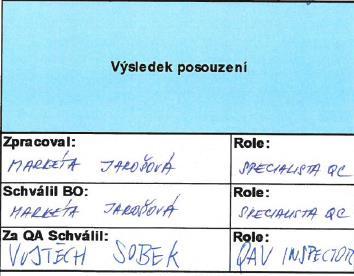 Výsledek posouzení
Zpracoval: Role:
MARKÉTA JAROŠOVÁ SPECIALISTA QC
Schválil BO: Role:
MARKÉTA JAROŠOVÁ SPECIALISTA QC
Za QA Schválil: Role:
VOJTĚCH SOBEK QAV INSPECTOR